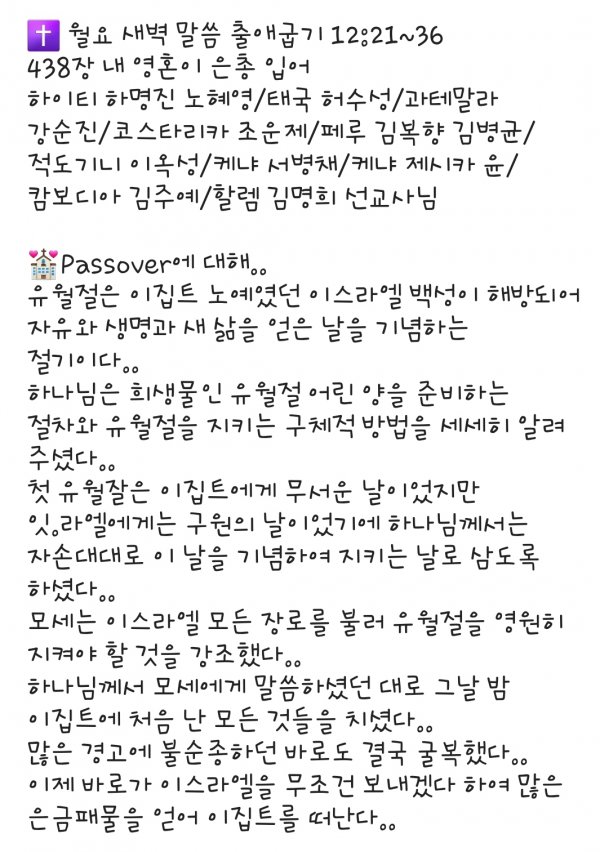 ✝️ 월요 새벽 말씀 출애굽기 12:21~36
438장 내 영혼이 은총 입어
하이티 하명진 노혜영/태국 허수성/과테말라
강순진/코스타리카 조운제/페루 김복향 김병균/
적도기니 이옥성/케냐 서병채/케냐 제시카 윤/
캄보디아 김주예/할렘 김명희 선교사님
💒Passover에 대해..
유월절은 이집트 노예였던 이스라엘 백성이 해방되어
자유와 생명과 새 삶을 얻은 날을 기념하는
절기이다..
하나님은 희생물인 유월절 어린 양을 준비하는
절차와 유월절을 지키는 구체적 방법을 세세히 알려
주셨다..
첫 유월잘은 이집트에게 무서운 날이었지만
잇.라엘에게는 구원의 날이었기에 하나님께서는
자손대대로 이 날을 기념하여 지키는 날로 삼도록
하셨다..
모세는 이스라엘 모든 장로를 불러 유월절을 영원히
지켜야 할 것을 강조했다..
하나님께서 모세에게 말씀하셨던 대로 그날 밤
이집트에 처음 난 모든 것들을 치셨다..
많은 경고에 불순종하던 바로도 결국 굴복했다..
이제 바로가 이스라엘을 무조건 보내겠다 하여 많은
은금패물을 얻어 이집트를 떠난다..